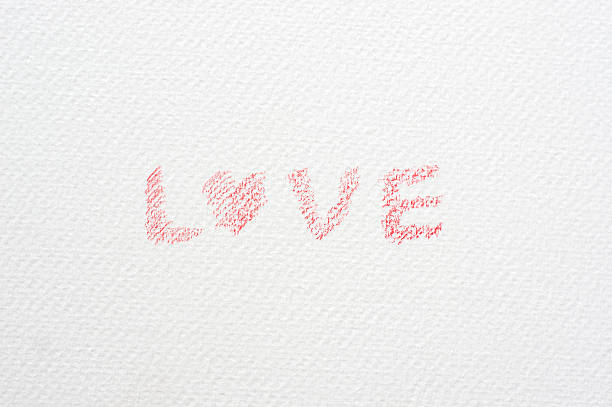 L♥VE